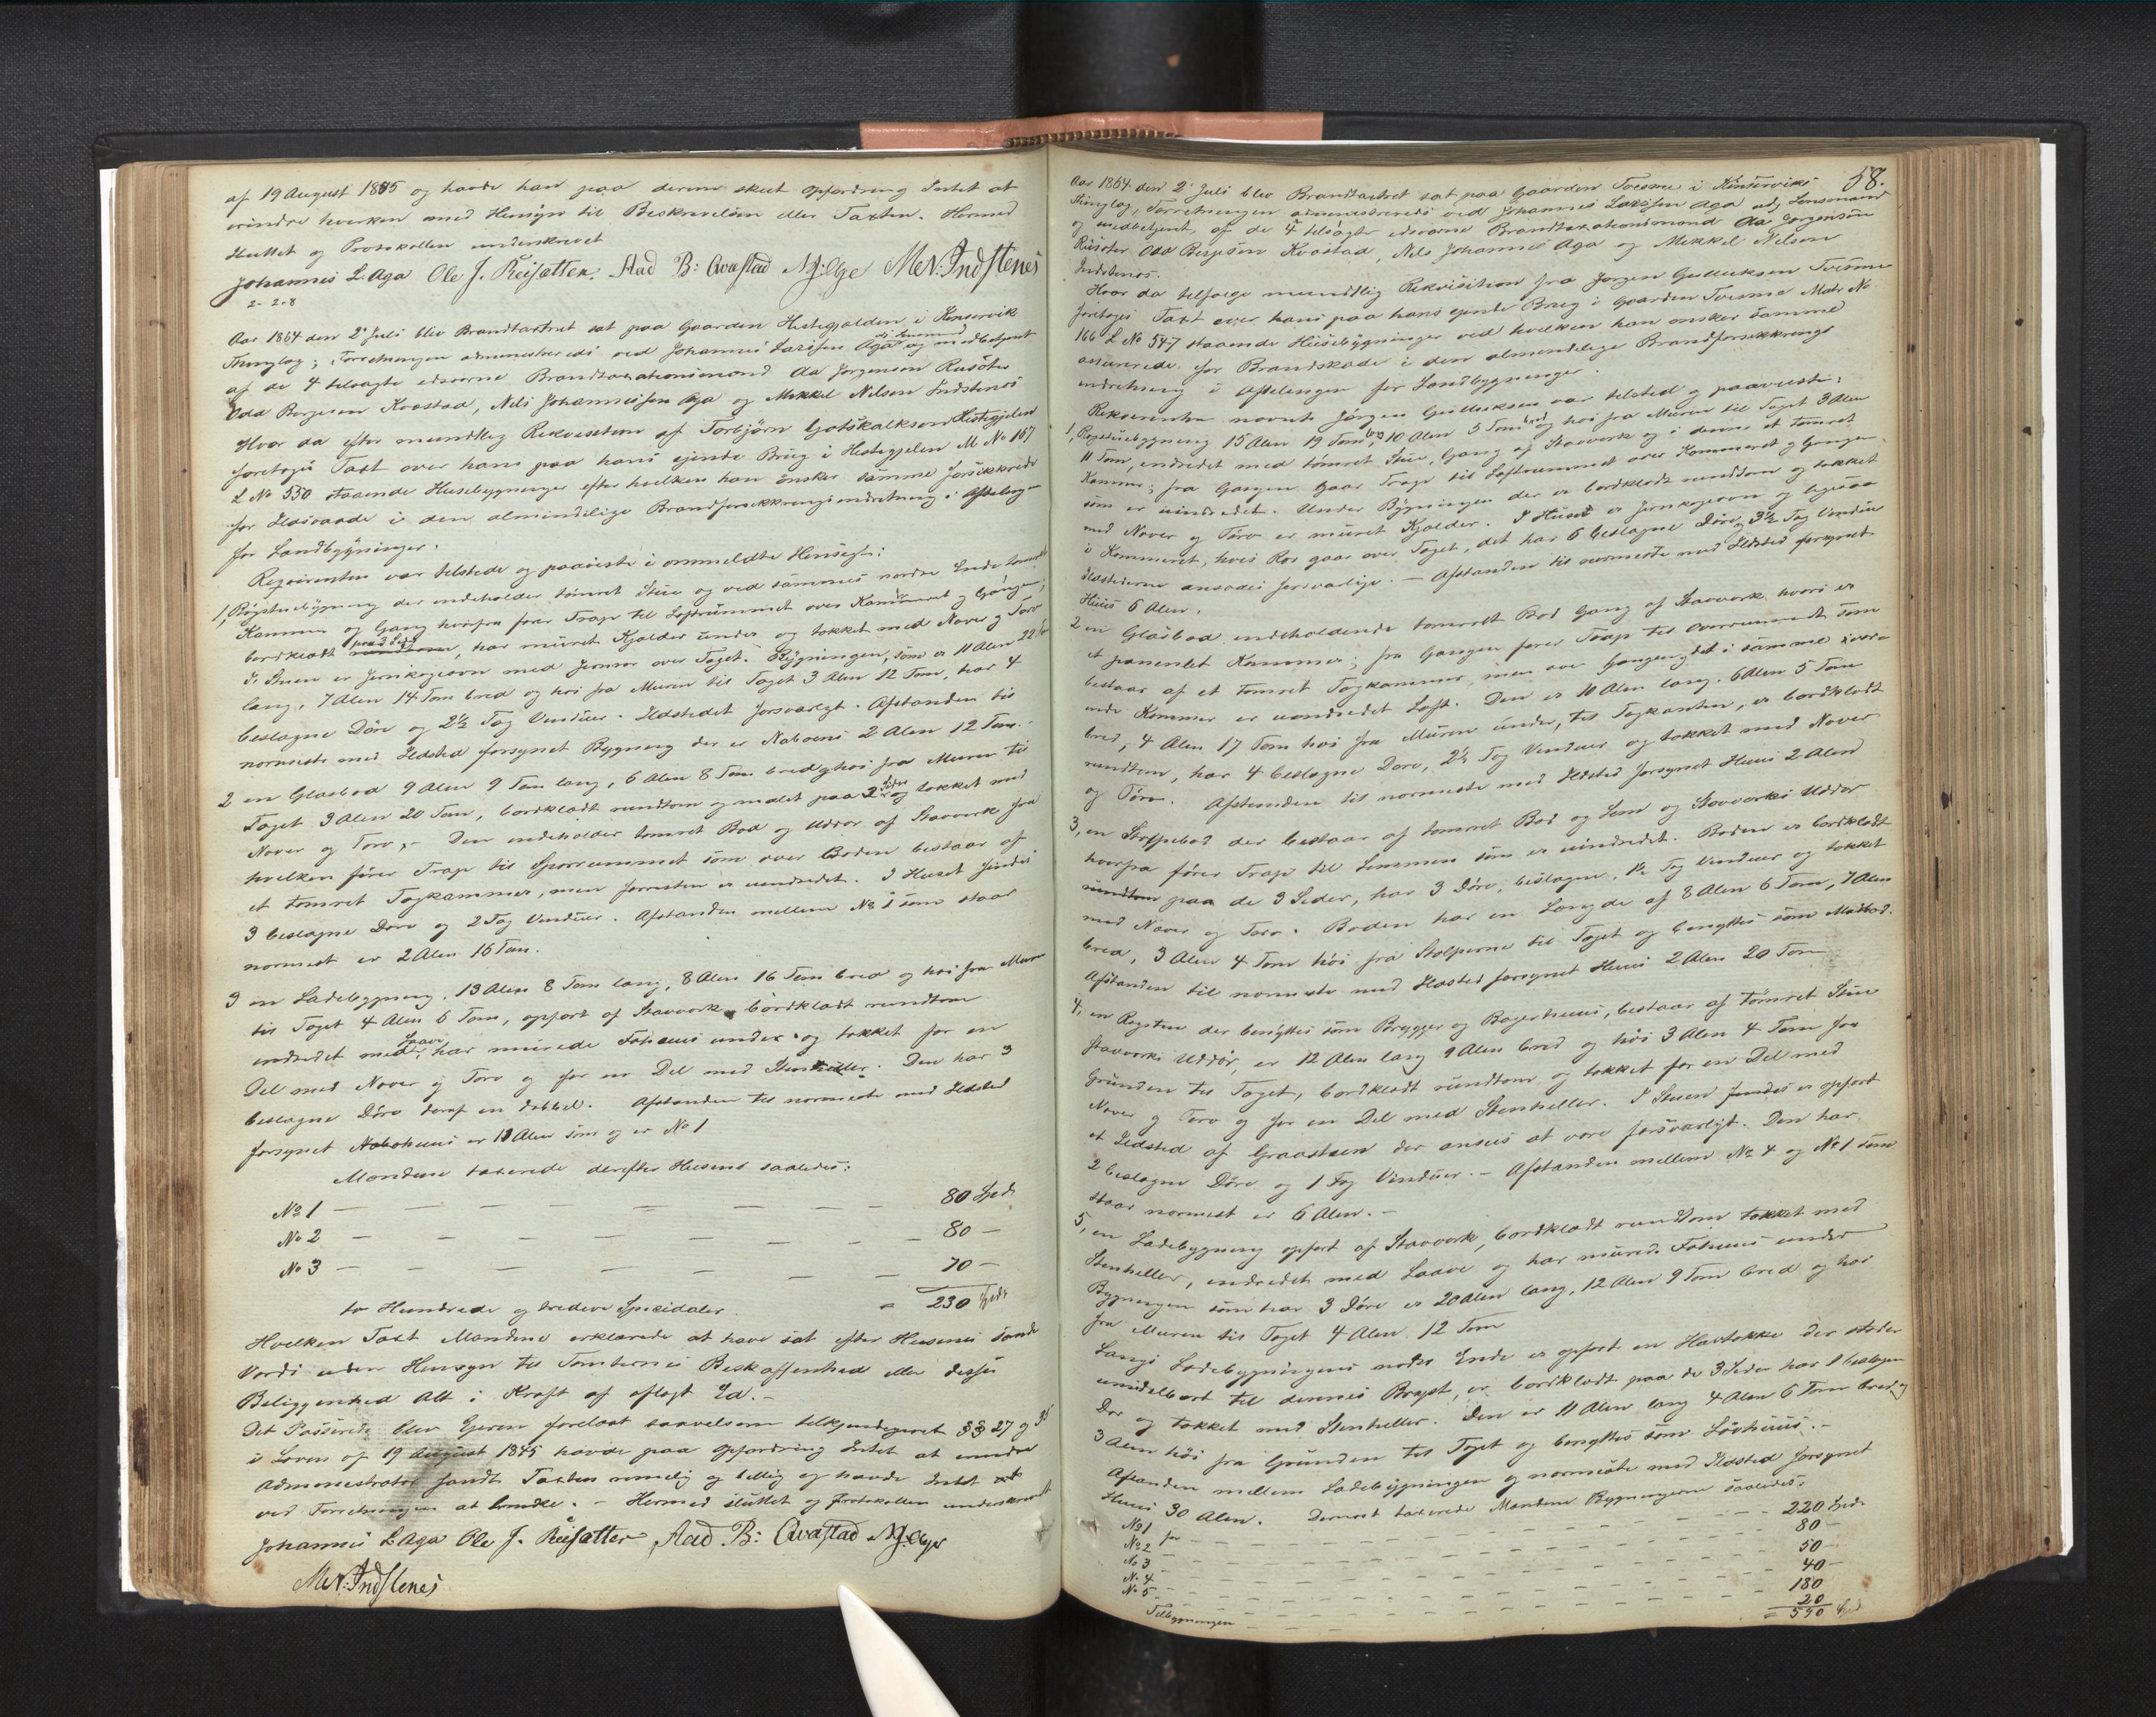 af 19 August 1845 og havde han paa derom skeet Opfordring Intet at
erindre hverken med Hensyn til Beskrivelsen eller Taxten. Hermed
sluttet og Protokollen underskrevet
Johannes L Aga Ole J. Reisætter. Aad B: Qvastad N J: Age M: N: Indstenes
2-2-8
Aar 1864 den 2' Juli blev Brandtaxtret sat paa Gaarden Hestegjælden i Kinservik
Thinglag; Forretningen administreredes ved Johannes Larssen Aga adj Lensmand og medbetjent
af de 4 tiltagte edsvorne Brandtaxationsmænd Ola Jørgensen Rusæter
Odd Børgesen Kvæstad, Nils Johannessen Aga og Mikkel Nilsen Indstenes
Hvor da efter mundtlig Rekvisition af Torbjørn Gotskalksen Hestegjelen
foretoges Taxt over hans paa hans ejende Brug i Hestegjelen M No 167
L No 550 staaende Husebygninger efter hvilken han ønsker samme forsikkrede
for Ildsvaade i den almindelige Brandforsikkringsindretning i Afdelingen
for Landbygninger.
Reqvirenten var tilstede og paaviste i ommeldte Henseende:
1, Røgstuebygning der indeholder tømret Stue og ved sammes nordre Ende tømret
Kammer og Gang hvorfra fører Trap til Loftrummet over Kammeret og Gangen;
bordklædt rundtom, har muret Kjælder under og tækket med Næver og Torv
I Stuen er Jernkogeovn med Jernrør over Taget. Bygningen, som er 11 Alen 22 Tom
lang, 7 Alen 14 Tom bred og høi fra Muren til Taget 3 Alen 12 Tom, har 4
beslagne Døre og 2½ Fag Vinduer. Ildstedet forsvarligt. Afstanden til
nærmeste med Ildsted forsynet Bygning der er Naboens 2 Alen 12 Tom.-
2 en Glasbod 9 Alen 9 Tom lang, 6 Alen 8 Tom bred og høi fra Muren til
Taget 3 Alen 20 Tom, bordklædt rundtom og malet paa 2 Sider og tækket med
Næver og Torv,- Den indeholder tømret Bod og Uddør af Stavværk fra
hvilken fører Trap til Sperrummet som over Boden bestaar af
et tømret Tagkammer, men forresten er uindredet. I Huset findes
3 beslagne Døre og 2 Fag Vinduer. Afstanden mellem No 1 som staar
nærmest er 2 Alen 16 Tom.
3 en Ladebygning. 13 Alen 8 Tom lang, 8 Alen 16 Tom bred og høi fra Muren
til Taget 4 Alen 6 Tom, opført af Stavværk bordklædt rundtom
indredet med Laave, har murede Føhuus under og tækket for en
Del med Næver og Torv og for en Del med Stenheller. Den har 3
beslagne Døre deraf en dobbel. Afstanden til nærmeste med Ildsted
forsynet Nabohuus er 11 Alen som og er No 1
Mændene taxerede derefter Husene saaledes:
No 1 — — — — — — — — 80 Spdr
No 2 — — — — — — — — 80 —
No 3 — — — — — — — — 70 —
to Hundrede og tredeve Speciedaler = 230 Spdr
Hvilken Taxt Mændene erklærede at have sat efter Husenes sande
Værdi uden Hensyn til Tomternes Beskaffenhed eller disses
Beliggenhed Alt i Kraft af aflagt Ed.-
Det Passerede blev Ejeren forelæst saavelsom tilkjendegivet §§ 27 og
i Loven af 19 August 1845 havde paa Opfordring Intet at erindre
Administrator fandt Taxten rimelig og billig og havde Intet
ved Forretningen at bemærke. - Hermed sluttet og Protokollen underskrevet
Johannes L Aga Ole J. Reisætter Aad B: Qvastad N J: Age
M: N: Indstenes
58.
Aar 1864 den 2' Juli blev Brandtaxtret sat paa Gaarden Tvesme i Kinserviks
Thinglag, Forretningen administreredes ved Johannes Larssen Aga adj Lensmand
og medbetjent af de 4 tiltagte edsvorne Brandtaxationsmænd Ola Jørgensen
Rusæter Odd Børgesen Kvæstad, Nils Johannes Aga og Mikkel Nilsen
Indstenes.
Hvor da tilfølge mundtlig Rekvisition fra Jørgen Gulleiksen Tvesme
foretoges Taxt over hans paa hans ejende Brug i Gaarden Tvesme Matr No
166 L No 547 staaende Husebygninger ved hvilken han ønsker samme
assurerede for Brandskade i den almindelige Brandforsikkrings
indretning i Afdelingen for Landbygninger.
Rekvirenten nævnte Jørgen Gulleiksen var tilsted og paaviste:
1, Røgstuebygning 15 Alen 19 Tom lang 10 Alen 5 Tom bred og høi fra Muren til Taget 3 Alen
11 Tom, indredet med tømret Stue, Gang af Stavværk og i denne et tømret
Kammer; fra Gangen gaar Trap til Loftrummet over Kammeret og Gangen
som er uindredet. Under Bygningen der er bordklædt rundtom og tækket
med Næver og Torv er muret Kjælder. I Huset er Jernkogeovn og ligesaa
i Kammeret, hvis Rør gaar over Taget, det har 6 beslagne Døre og 3½ Fag Vinduer
Ildstederne ansaaes forsvarlige. - Afstanden til nærmeste med Ildsted forsynet
Huus 6 Alen.
2 en Glasbod indeholdende tømret Bod Gang af Stavværk hvori er
et panenlet Kammer; fra Gangen fører Trap til Overrummet som
bestaar af et tømret Tagkammer, men over Gangen og det i samme være
nde Kammer er uindredet Loft. Den er 10 Alen lang. 6 Alen 5 Tom
bred, 4 Alen 17 Tom høi fra Muren under, til Tagkanten, er bordklædt
rundtom, har 4 beslagne Døre, 2½ Fag Vinduer og tækket med Næver
og Torv. Afstanden til nærmeste med Ildsted forsynet Huus 2 Alen
3, en Stolpebod der bestaar af tømret Bod og Lem og Stavværks Uddør
hvorfra fører Trap til Lemmen som er uindredet. Boden er bordklædt
rundtom paa de 3 Sider, har 3 Døre, beslagne, 1½ Fag Vinduer og tækket
med Næver og Torv. Boden har en Længde af 8 Alen 6 Tom, 7 Alen
bred, 3 Alen 4 Tom høi fra Stolperne til Taget og benyttes som Madbod.
Afstanden til nærmeste med Ildsted forsynet Huus 2 Alen 20 Tom
4, en Røgstue der benyttes som Brygger og Bagerhuus, bestaar af tømret Stue
Stavværks Uddør, er 12 Alen lang 9 Alen bred og høi 3 Alen 4 Tom fra
Grunden til Taget, bordklædt rundtom og tækket for en Del med
Næver og Torv og for en Del med Stenheller. I Stuen findes er opført
et Ildsted af Graasteen der ansees at være forsvarligt. Den har
2 beslagne Døre og 1 Fag Vinduer. - Afstanden mellem No 4 og No 1 som
staar nærmest er 6 Alen. -
5, en Ladebygning opført af Stavværk, bordklædt rundtom tækket med
Stenheller, indredet med Laave og har murede Føhuus under
Bygningen som har 3 Døre er 20 Alen lang, 12 Alen 9 Tom bred og har
fra Muren til Taget 4 Alen 12 Tom
Langs Ladebygningens nordre Ende er opført en Havtække der støder
umidelbart til dennes Brøst, er bordklædt paa de 3 Sider har 1 beslagen
Dør og tækket med Stenheller. Den er 11 Alen lang 4 Alen 6 Tom bred og
3 Alen høi fra Grunden til Taget og benyttes som Løvhuus. -
Afstanden mellem Ladebygningen og nærmeste med Ildsted forsynet
Huus 30 Alen. Dernæst taxerede Mændene Bygningerne saaledes:
No 1 for — — — — — — — 220 Spdr
No 2 — — — — — — — 80 —
No 3 — — — — — — — 50 —
No 4 — — — — — — — 40 —
No 5 — — — — — — — 180
Tilbygningen — — — — — — 20
= 590 Spd